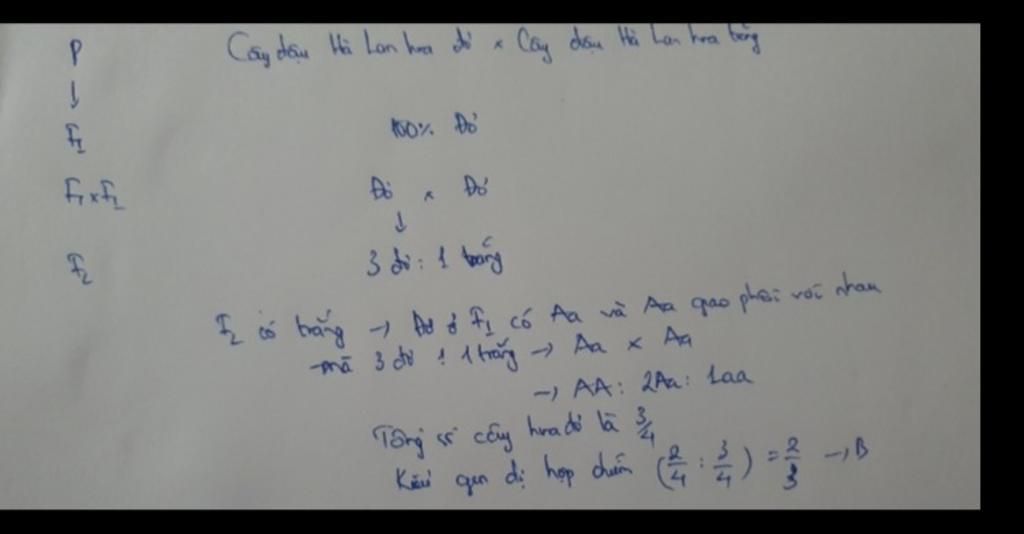 P Cây đậu Hà Lan hoa đỏ × Cây đậu Hà Lan hoa trắng
↓
F1 100% Đỏ
F1 × F1 Đỏ × Đỏ
↓
F2 3 đỏ : 1 trắng
F2 có trắng → Đỏ ở F1 có Aa và Aa giao phối với nhau
mà 3 đỏ : 1 trắng → Aa × Aa
→ AA : 2Aa : 1aa
Tổng số cây hoa đỏ là 3/4
Kiểu gen dị hợp chiếm (2/4 : 3/4) = 2/3 → B